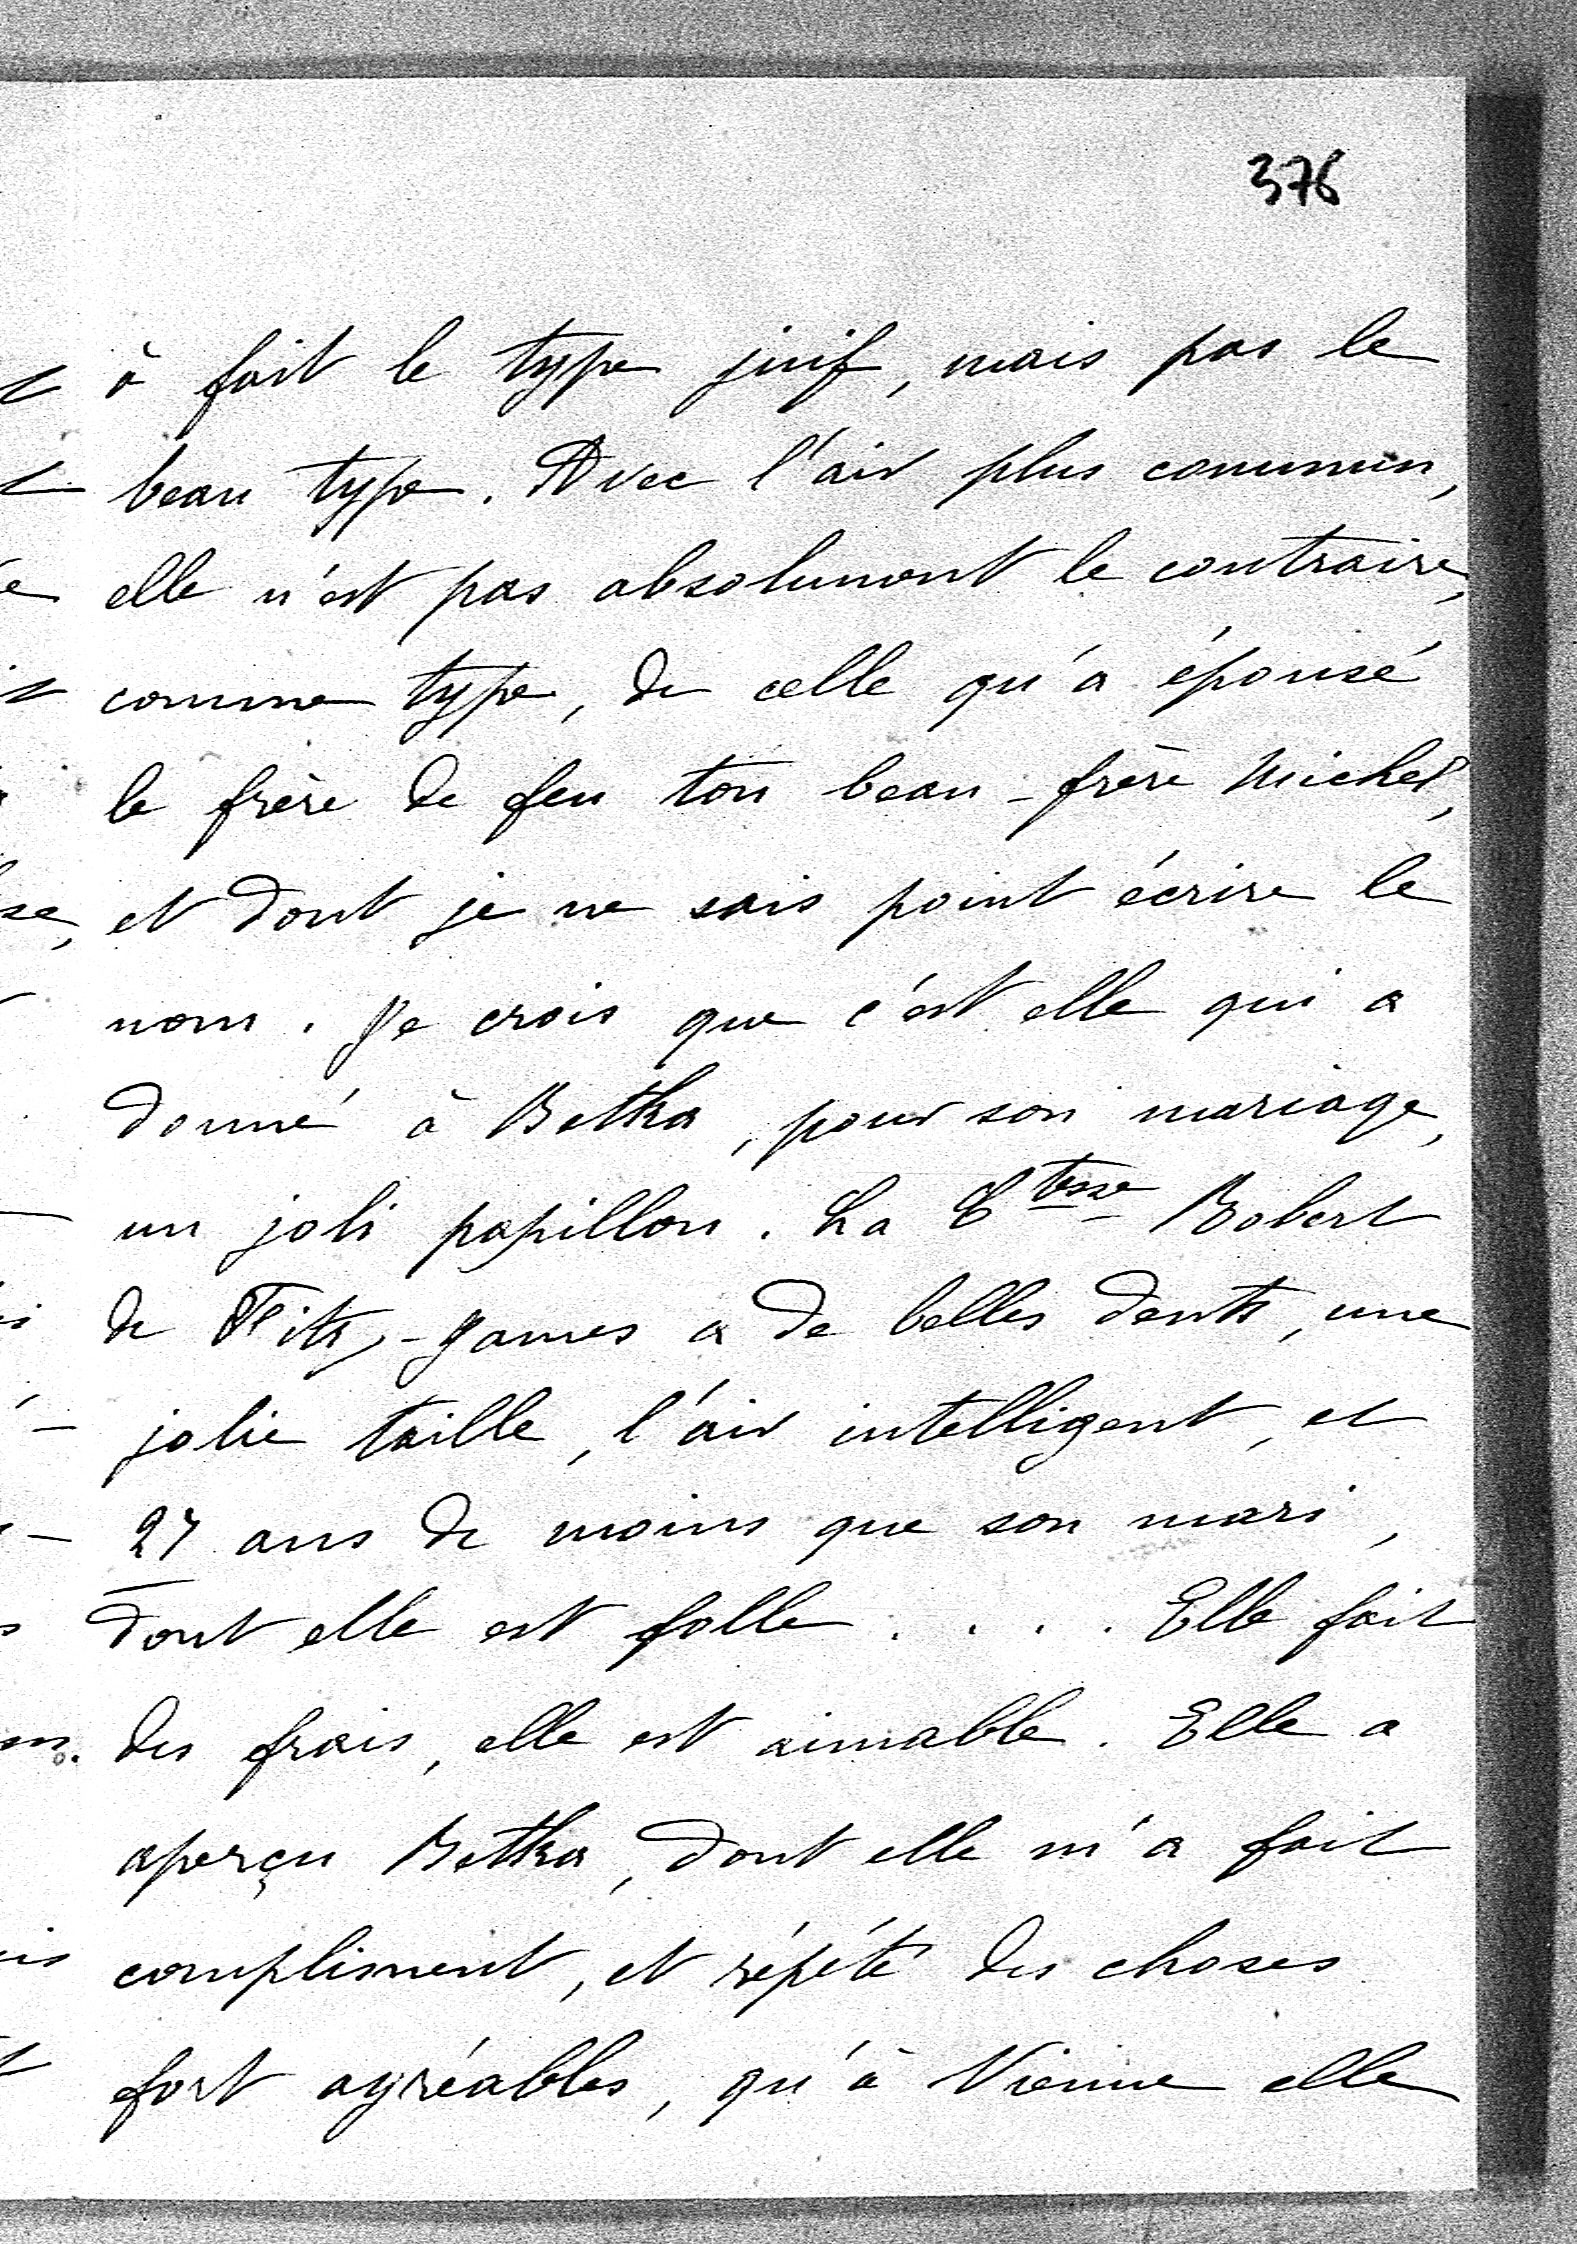 376
à fait le type juif, mais pas le
beau type. Avec l'air plus commun,
elle n'est pas absolument le contraire,
comme type, de celle qu'a épousé
le frère de feu ton beau-frère Michel,
et dont je ne sais point écrire le
nom. Je crois que c'est elle qui a
donné à Betka, pour son mariage,
un joli papillon. La Ctesse Robert
de Fitz-James a de belles dents, une
jolie taille, l'air intelligent, et
27 ans de moins que son mari,
dont elle est folle .... Elle fait
des frais, elle est aimable. Elle a
aperçu Betka, dont elle m'a fait
compliment, et répété des choses
fort agréables, qu'à Vienne elle